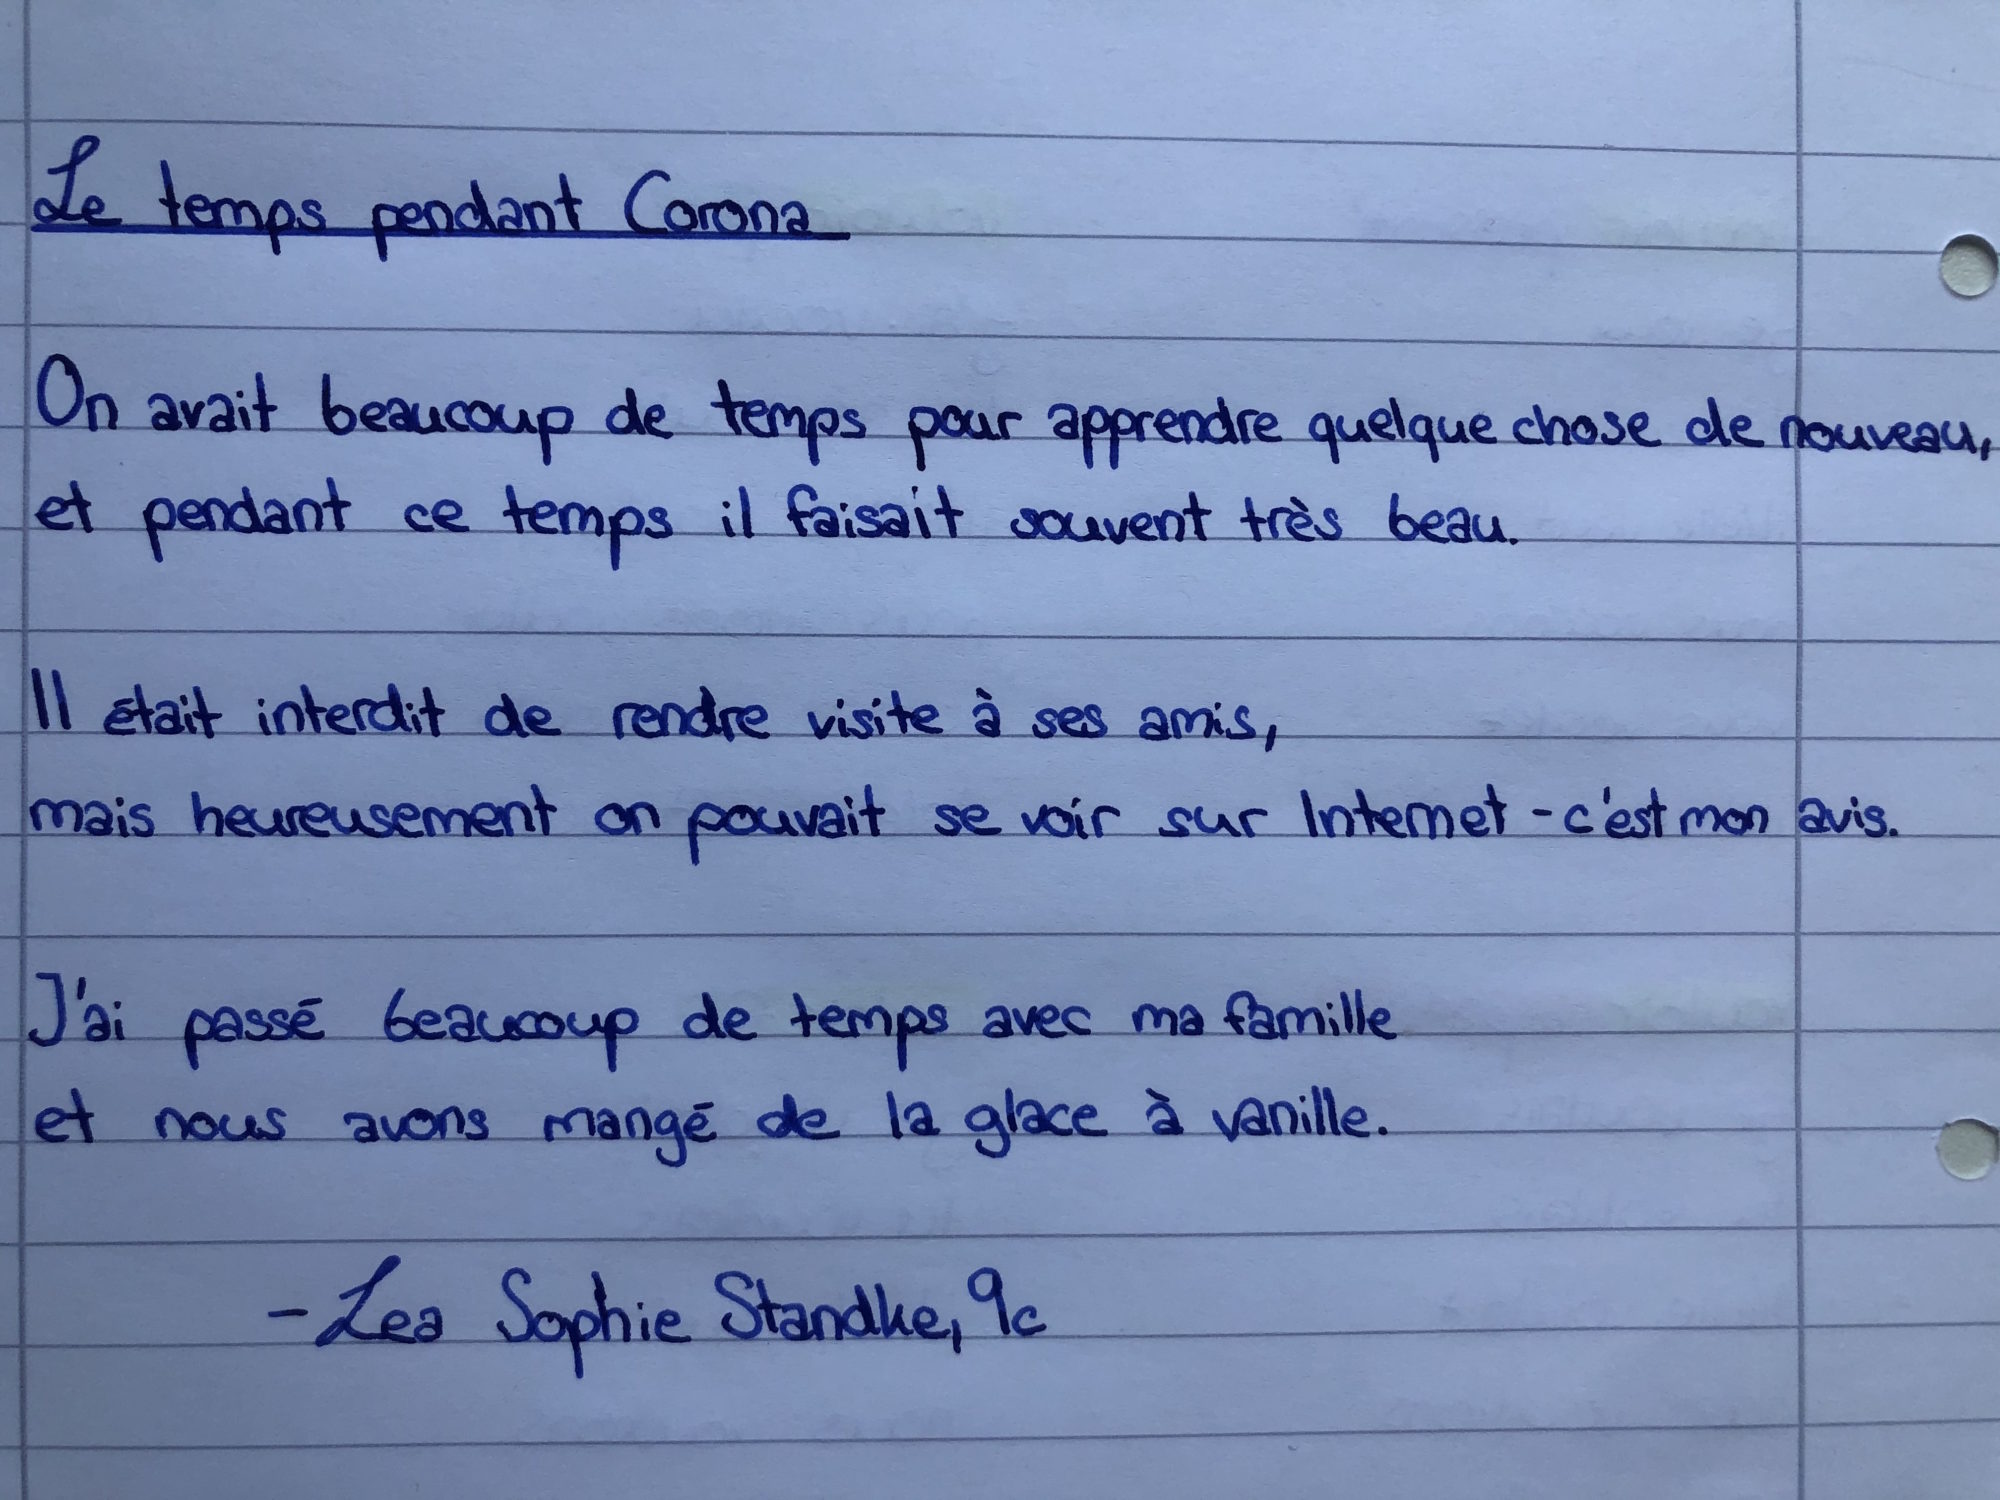 Le temps pendant Corona
On avait beaucoup de temps pour apprendre quelque chose de nouveau,
et pendant ce temps il faisait souvent très beau.
Il était interdit de rendre visite à ses amis,
mais heureusement on pouvait se voir sur Internet - c'est mon avis.
J'ai passé beaucoup de temps avec ma famille
et nous avons mangé de la glace à vanille.
- Lea Sophie Standke, 9c